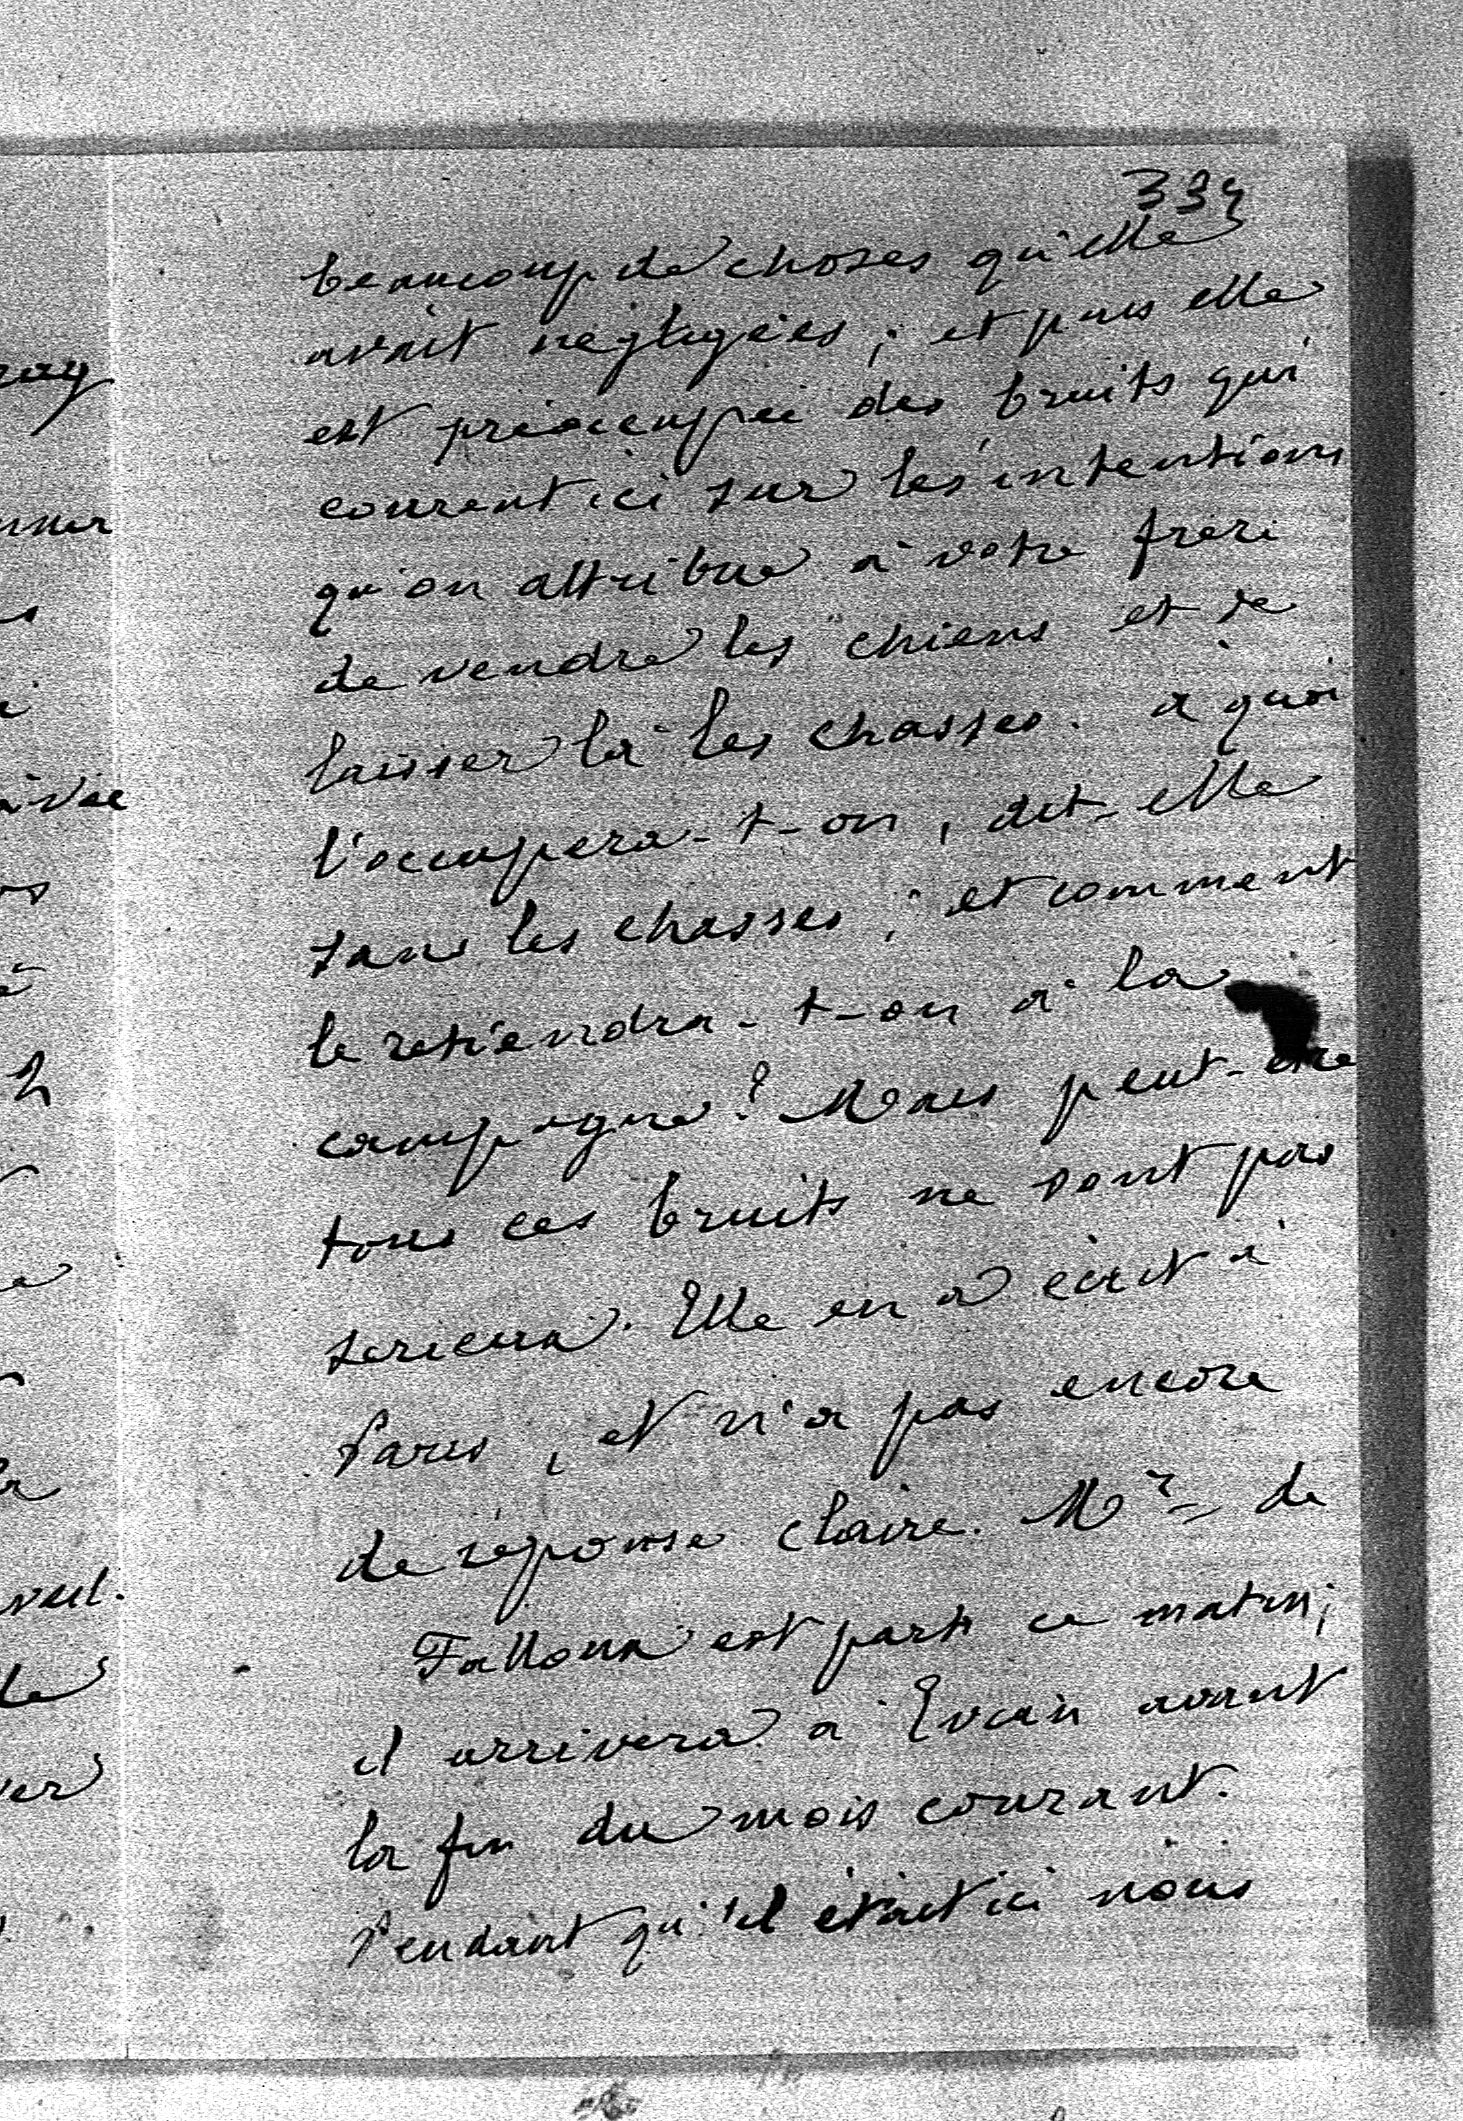 334
beaucoup de choses qu'elle
avait négligées ; et puis elle
est préoccupée des bruits qui
courent ici sur les intentions
qu'on attribue à votre frère
de vendre les chiens et de
laisser là les chasses. à quoi
l'occupera-t-on, dit-elle
sans les chasses ; et comment
le retiendra-t-on à la
campagne ? Mais peut-être
tous ces bruits ne sont pas
serieux. Elle en a écrit à
Paris, et n'a pas encore
de réponse claire. Mr de
Falloux est parti ce matin ;
il arrivera à Evian avant
la fin du mois courant.
Pendant qu'il était ici nous